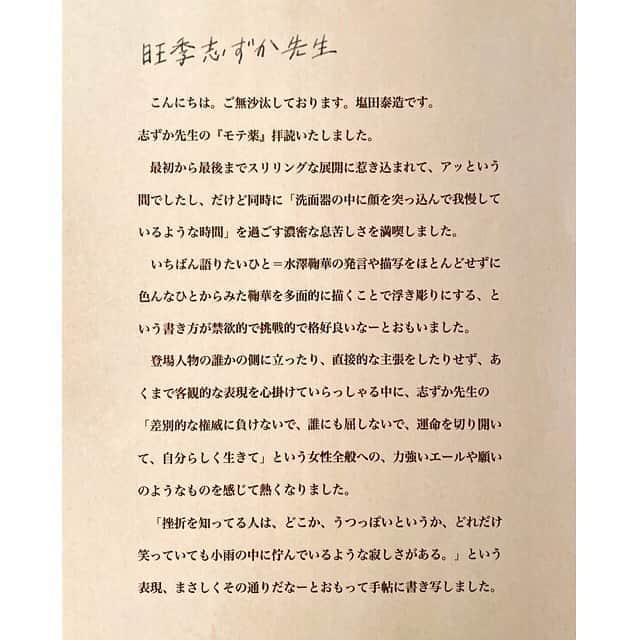 旺季志ずか先生
こんにちは。ご無沙汰しております。塩田泰造です。
志ずか先生の『モテ薬』拝読いたしました。
最初から最後までスリリングな展開に惹き込まれて、アッという
間でしたし、だけど同時に「洗面器の中に顔を突っ込んで我慢して
いるような時間」を過ごす濃密な息苦しさを満喫しました。
いちばん語りたいひと＝水澤鞠華の発言や描写をほとんどせずに
色んなひとからみた鞠華を多面的に描くことで浮き彫りにする、と
いう書き方が禁欲的で挑戦的で格好良いなーとおもいました。
登場人物の誰かの側に立ったり、直接的な主張をしたりせず、あ
くまで客観的な表現を心掛けていらっしゃる中に、志ずか先生の
「差別的な権威に負けないで、誰にも屈しないで、運命を切り開い
て、自分らしく生きて」という女性全般への、力強いエールや願い
のようなものを感じて熱くなりました。
「挫折を知ってる人は、どこか、うつっぽいというか、どれだけ
笑っていても小雨の中に佇んでいるような寂しさがある。」という
表現、まさしくその通りだなーとおもって手帖に書き写しました。